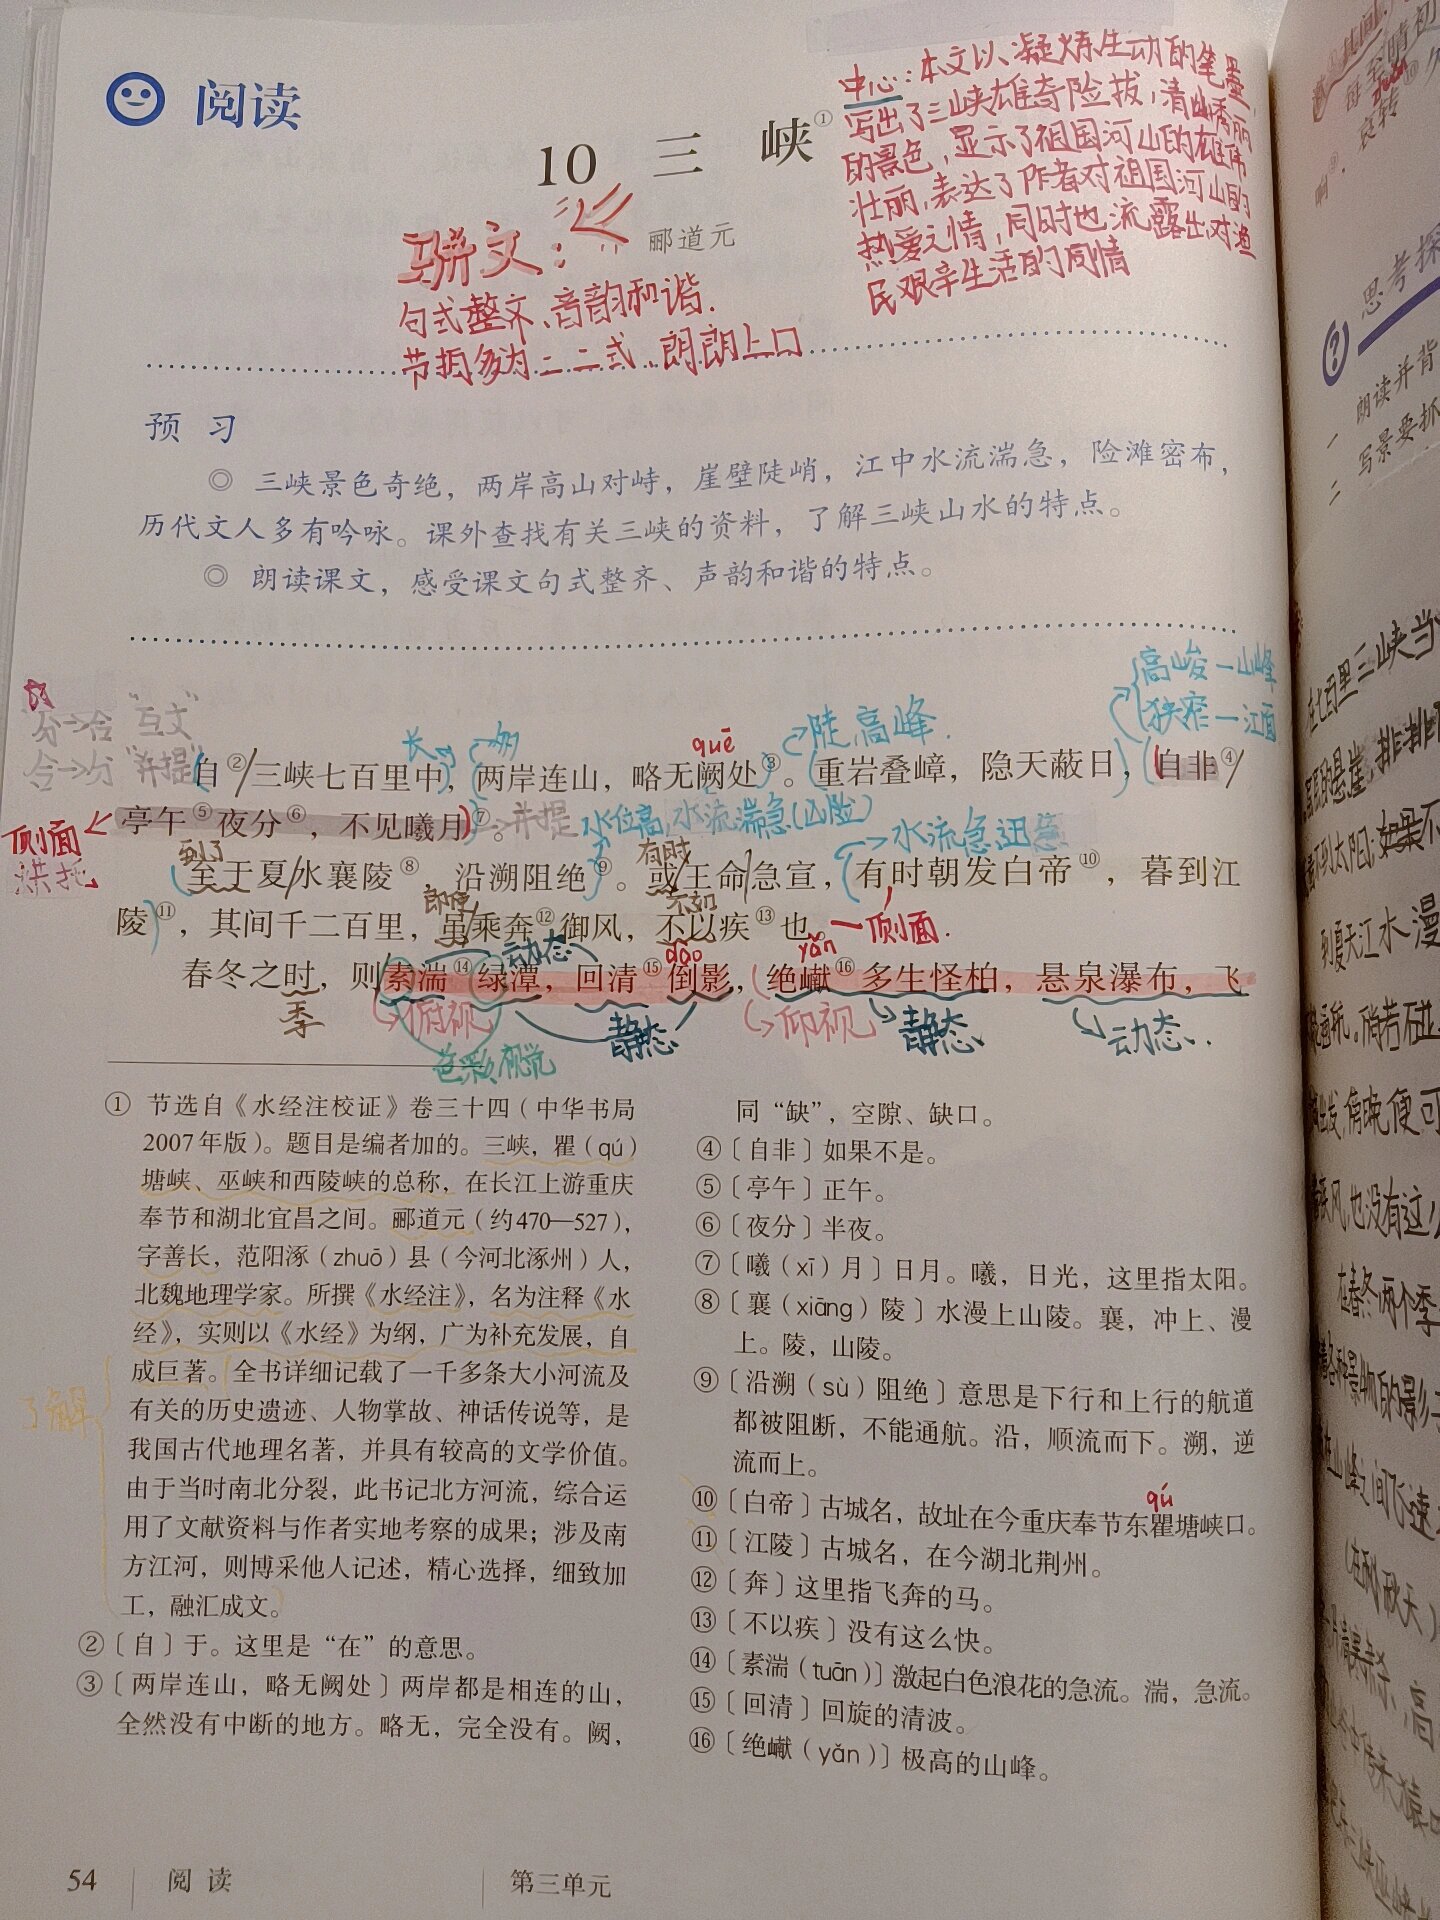 阅读
10 三 峡①
郦道元
中心：本文以凝炼生动的笔墨，
写出了三峡雄奇险拔，清幽秀丽
的景色，显示了祖国河山的雄伟
壮丽，表达了作者对祖国河山的
热爱之情，同时也流露出对渔
民艰辛生活的同情
骈文：
句式整齐、音韵和谐.
节拍多为二二式、朗朗上口
预 习
◎ 三峡景色奇绝，两岸高山对峙，崖壁陡峭，江中水流湍急，险滩密布，
历代文人多有吟咏。课外查找有关三峡的资料，了解三峡山水的特点。
◎ 朗读课文，感受课文句式整齐、声韵和谐的特点。
高峻－山峰
狭窄－江面
分→合 "互文"
合→分 "并提"
长
quē
陡，高峰.
自②/三峡七百里中，两岸连山，略无阙处③。重岩叠嶂，隐天蔽日，自非④/
亭午⑤夜分⑥，不见曦月⑦。
并提
水位高，水流湍急(凶险)
水流急迅
侧面
烘托
到了
有时
至于夏/水襄陵⑧，沿溯阻绝⑨。或/王命/急宣，有时朝发白帝⑩，暮到江
即使
不如
陵⑪，其间千二百里，虽乘奔⑫御风，不以疾⑬也。
一侧面.
动态
dào
yǎn
春冬之时，则素湍⑭绿潭，回清⑮倒影，绝𪩘⑯多生怪柏，悬泉瀑布，飞
季
俯视
静态
仰视
静态
动态.
色彩 视觉
① 节选自《水经注校证》卷三十四（中华书局
2007年版）。题目是编者加的。三峡，瞿（qú）
塘峡、巫峡和西陵峡的总称，在长江上游重庆
奉节和湖北宜昌之间。郦道元（约470—527），
字善长，范阳涿（zhuō）县（今河北涿州）人，
北魏地理学家。所撰《水经注》，名为注释《水
经》，实则以《水经》为纲，广为补充发展，自
成巨著。全书详细记载了一千多条大小河流及
有关的历史遗迹、人物掌故、神话传说等，是
我国古代地理名著，并具有较高的文学价值。
由于当时南北分裂，此书记北方河流，综合运
用了文献资料与作者实地考察的成果；涉及南
方江河，则博采他人记述，精心选择，细致加
工，融汇成文。
了解
②〔自〕于。这里是“在”的意思。
③〔两岸连山，略无阙处〕两岸都是相连的山，
全然没有中断的地方。略无，完全没有。阙，
同“缺”，空隙、缺口。
④〔自非〕如果不是。
⑤〔亭午〕正午。
⑥〔夜分〕半夜。
⑦〔曦（xī）月〕日月。曦，日光，这里指太阳。
⑧〔襄（xiāng）陵〕水漫上山陵。襄，冲上、漫
上。陵，山陵。
⑨〔沿溯（sù）阻绝〕意思是下行和上行的航道
都被阻断，不能通航。沿，顺流而下。溯，逆
流而上。
qú
⑩〔白帝〕古城名，故址在今重庆奉节东瞿塘峡口。
⑪〔江陵〕古城名，在今湖北荆州。
⑫〔奔〕这里指飞奔的马。
⑬〔不以疾〕没有这么快。
⑭〔素湍（tuān）〕激起白色浪花的急流。湍，急流。
⑮〔回清〕回旋的清波。
⑯〔绝𪩘（yǎn）〕极高的山峰。
54 阅 读 第三单元
哀转
思考探
一 朗读并背
二 写景要抓
在七百里三峡当
到夏天江水漫
在春冬两个季
(在秋天)